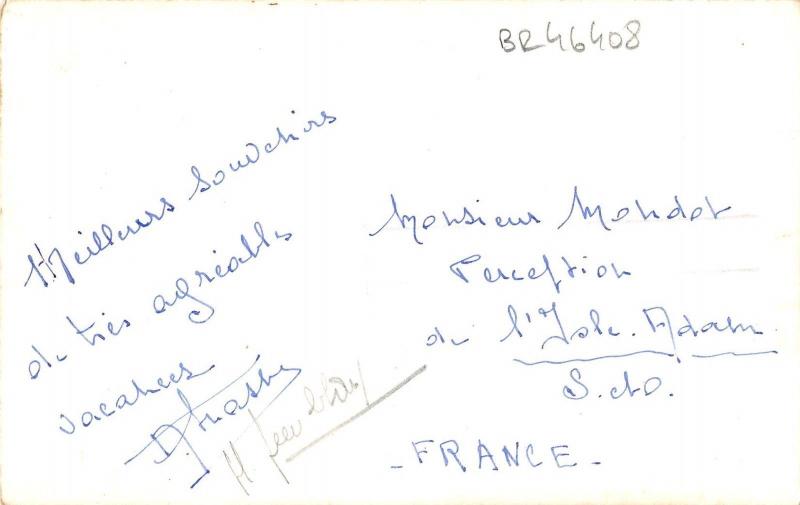 BR46408
Meilleurs Souvenirs
de très agréables
vacances
Monsieur Mondot
Perception
de l'Isle. Adam
S. et O.
- FRANCE -